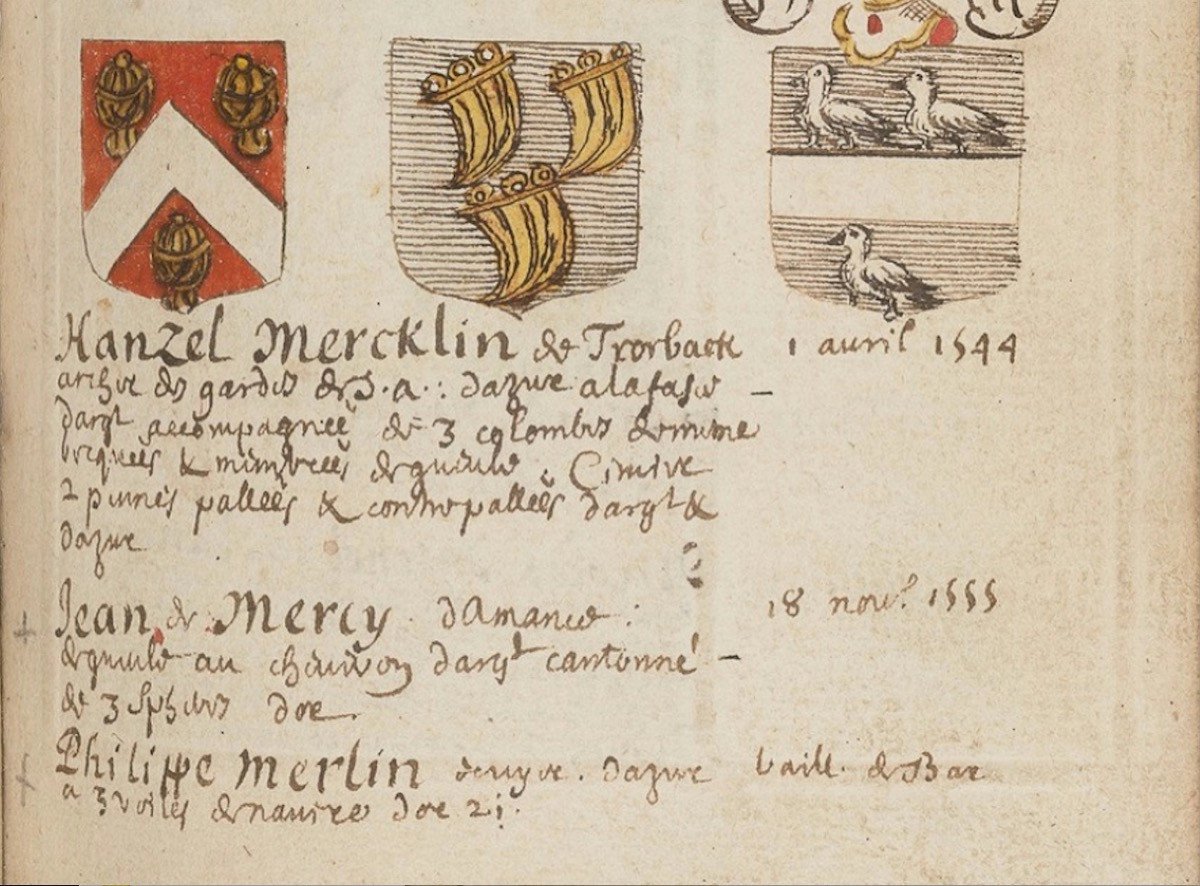 Hanzel Mercklin de Trorback 1 auril 1544
archer des gardes de S. a. : dazur a la fasce –
dargt accompagneé de 3 colombes de mime
becquees & membreés de gueule . Cimier
2 pennes palleés & contrepalleés dargt &
dazur
Jean de Mercy damance : 18 nove. 1555
de gueule au cheuron dargt cantonné –
de 3 spheres dor .
Philippe Merlin ecuyer . dazur baill. de Bar
a 3 voiles de nauire dor 2 i .